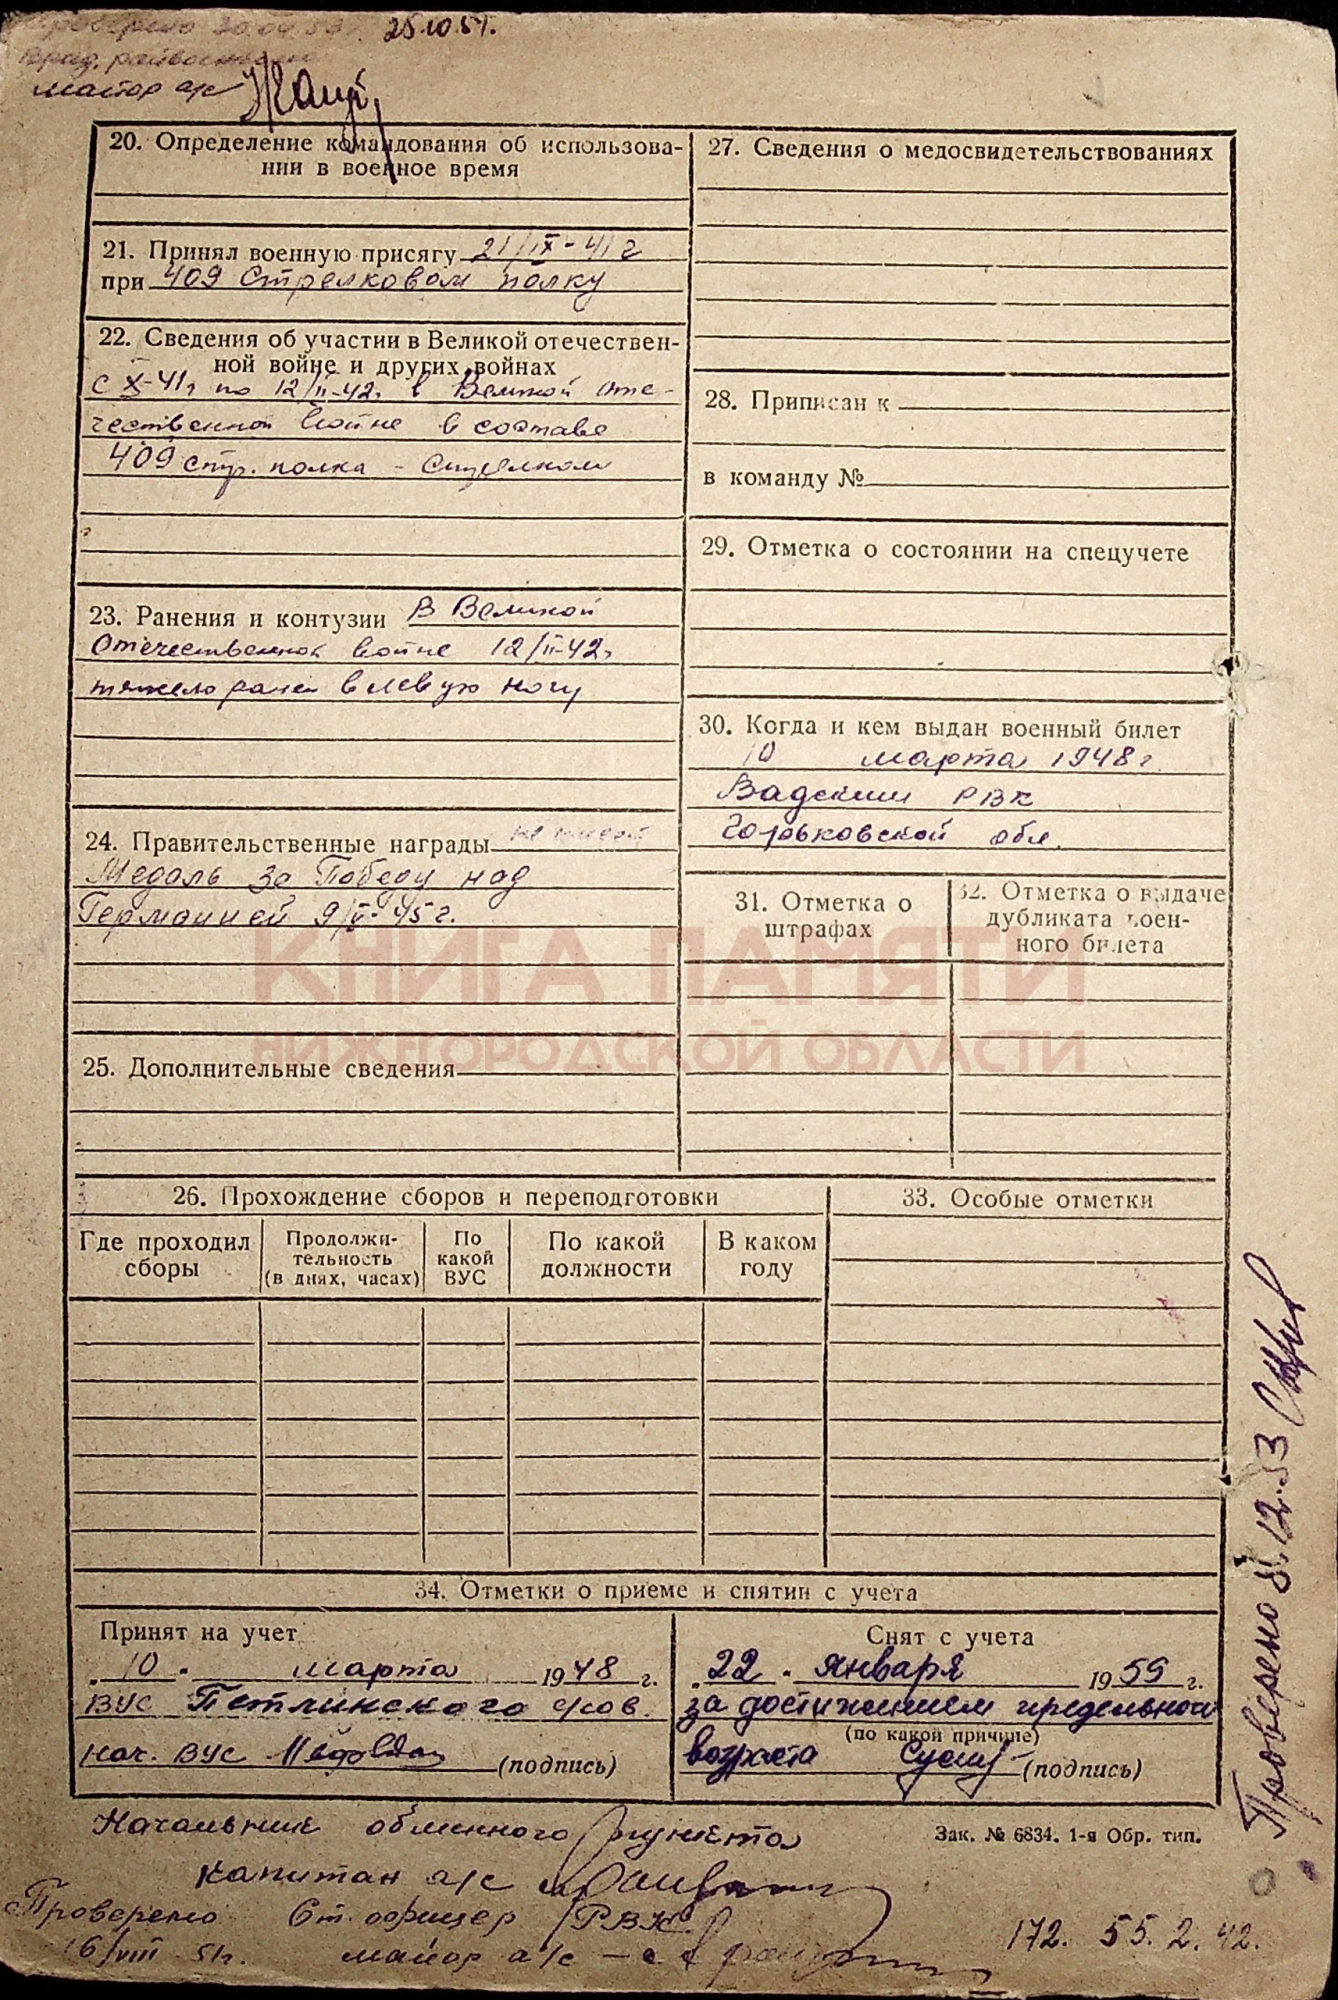 Проверено 20.04.53г. 25.10.51.
майор а/с
20. Определение командования об использова-
нии в военное время
21. Принял военную присягу 21/IX-41г
при 409 Стрелковом полку
22. Сведения об участии в Великой отечествен-
ной войне и других войнах
с X-41г по 12/II-42г в Великой оте-
чественной войне в составе
409 стр. полка - Стрелком
23. Ранения и контузии В Великой
Отечественной войне 12/II-42г
тяжело ранен в левую ногу
24. Правительственные награды не имеет
Медаль За Победу над
Германией 9/V-45г.
25. Дополнительные сведения
27. Сведения о медосвидетельствованиях
28. Приписан к
в команду №
29. Отметка о состоянии на спецучете
30. Когда и кем выдан военный билет
10 марта 1948г.
Вадским РВК
Горьковской обл.
31. Отметка о
штрафах
32. Отметка о выдаче
дубликата воен-
ного билета
КНИГА ПАМЯТИ
НИЖЕГОРОДСКОЙ ОБЛАСТИ
26. Прохождение сборов и переподготовки
Где проходил
сборы
Продолжи-
тельность
(в днях, часах)
По
какой
ВУС
По какой
должности
В каком
году
33. Особые отметки
34. Отметки о приеме и снятии с учета
Принят на учет
10 марта 1948 г.
ВУС Петлинского
нач. ВУС (подпись)
Снят с учета
22 января 1955 г.
за достижением предельного
(по какой причине)
возраста (подпись)
Зак. № 6834. 1-я Обр. тип.
Начальник обменного пункта
капитан а/с
Проверено Ст. офицер РВК
16/VIII 51г. майор а/с
172. 55. 2. 42.
Проверено 12.53